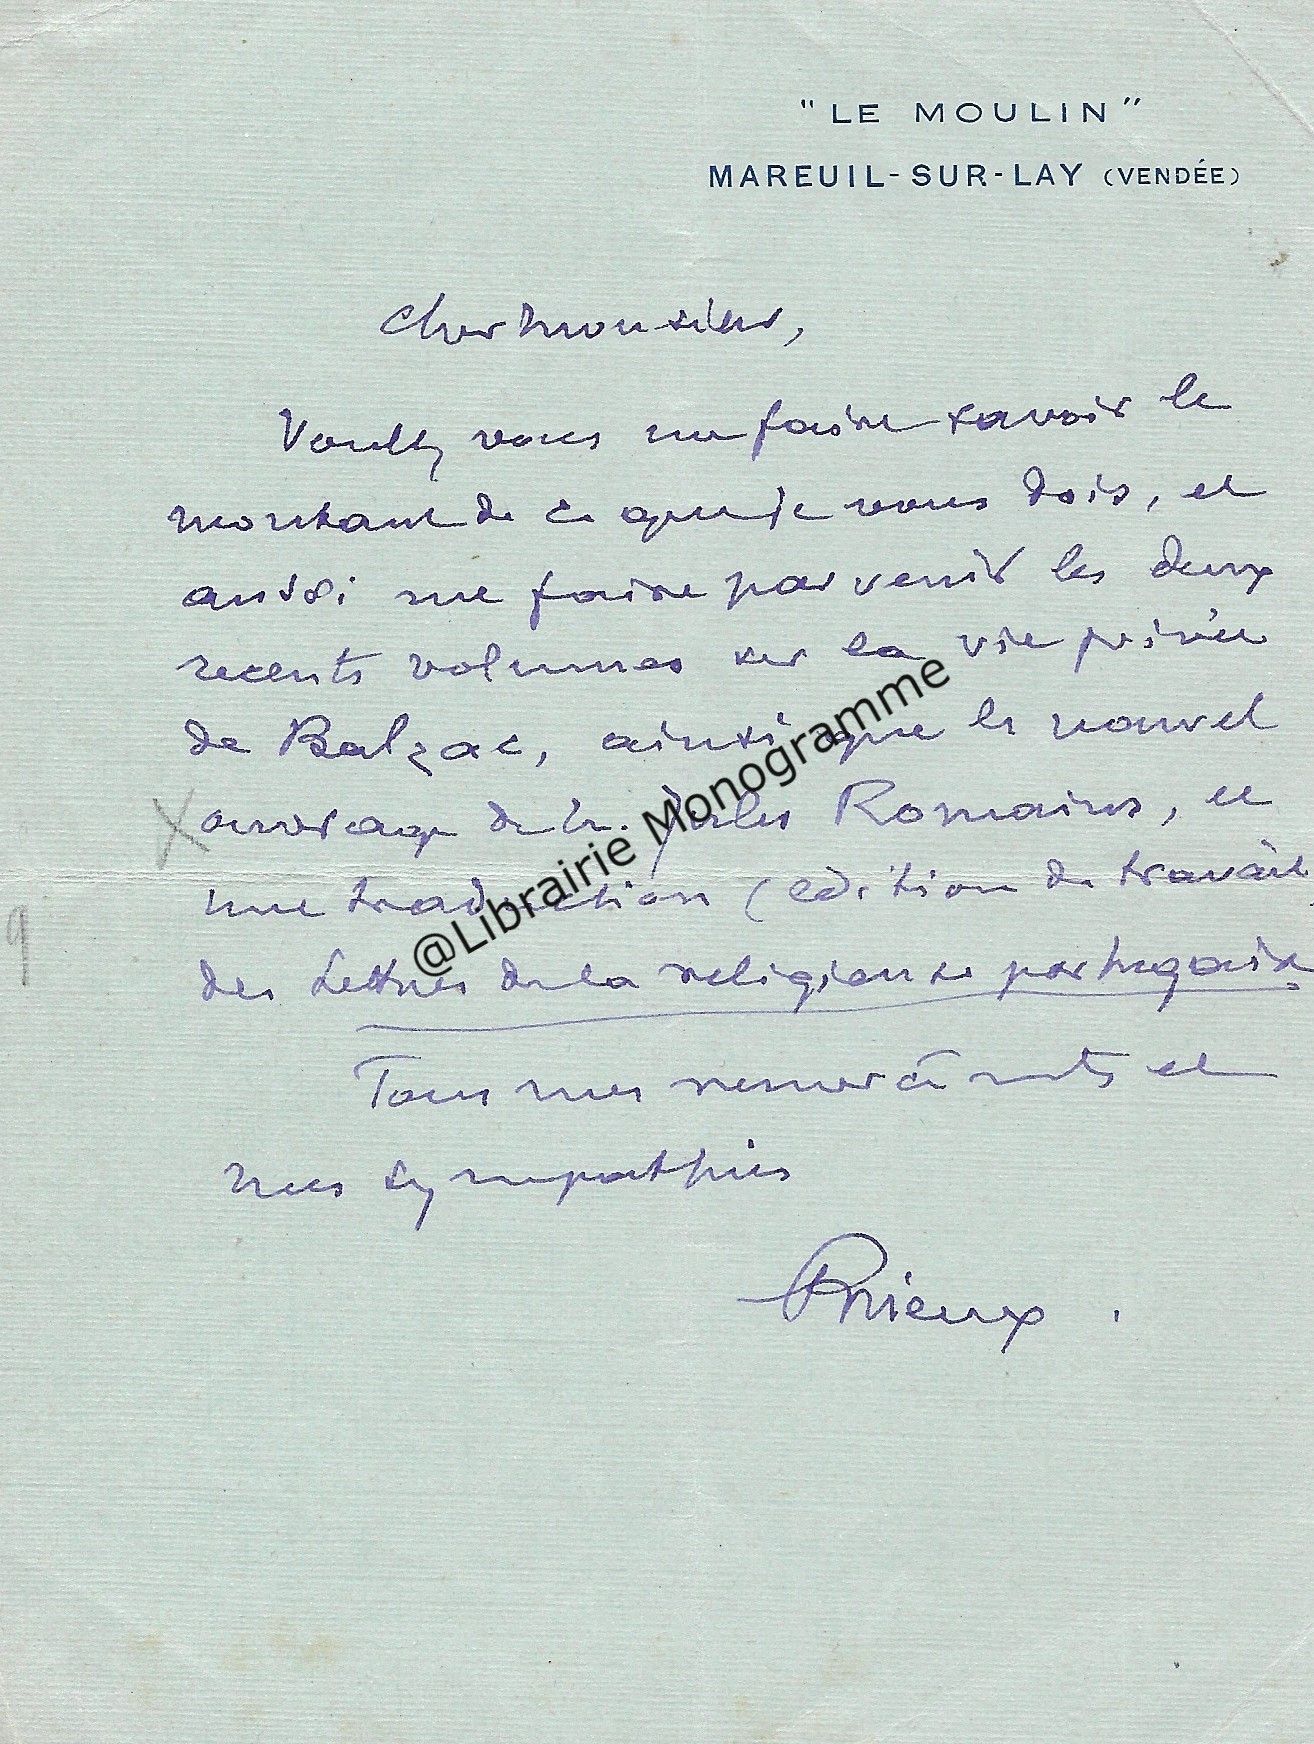 "LE MOULIN"
MAREUIL-SUR-LAY (VENDÉE)
Cher Monsieur,
Voulez vous me faire savoir le
montant de ce que je vous dois, et
aussi me faire parvenir les deux
recents volumes sur la vie privée
de Balzac, ainsi que le nouvel
X ouvrage de M. Jules Romains, et
une traduction (édition de travail
9
des Lettres de la religieuse portugaise.
Tous mes remerciements et
mes sympathies
Rieux.
@Librairie Monogramme